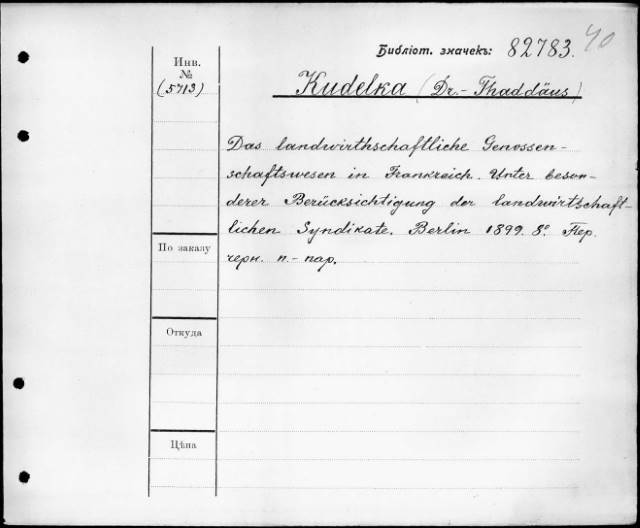 Библіот. значекъ: 82783. 40
Инв.
№
(5713)
Kudelka (Dr.- Thaddäus)
Das landwirthschaftliche Genossen-
schaftswesen in Frankreich. Unter beson-
derer Berücksichtigung der landwirtschaft-
lichen Syndikate. Berlin 1899. 8º. Пер.
черн. п.- пар.
По заказу
Откуда
Цѣна